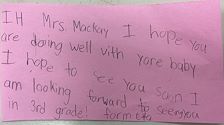 IH Mrs. Mackay I hope you
are doing well vith yore baby
I hope to see you soon I
am looking forward to seenyou
in 3rd grade!